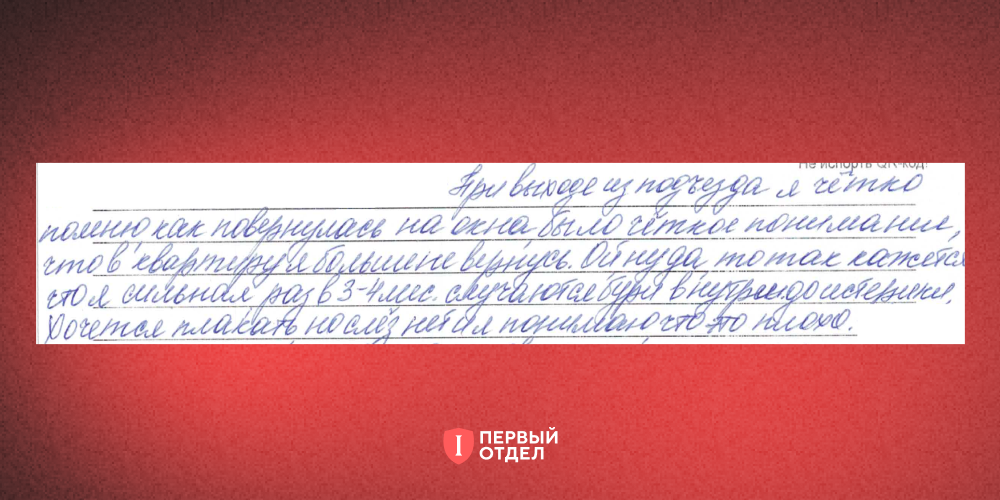 Не испорть QR-код!
При выходе из подъезда я чётко
помню как повернулась на окна было чёткое понимание,
что в квартиру я больше не вернусь. Ой ну да, то так кажется
что я сильная раз в 3-4 мес. случаются бури внутри и до истерики.
Хочется плакать, но слёз нет и я понимаю, что это плохо.
ПЕРВЫЙ
ОТДЕЛ